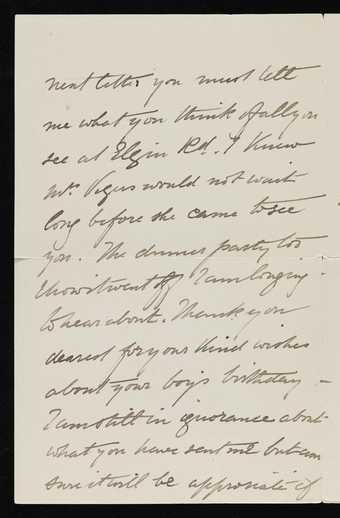 next letter you must tell
me what you think of all you
see at Elgin Rd. I knew
Mrs Vigus would not wait
long before she came to see
you. The dinner party too
& how it went off I am longing
to hear about. Thank you
dearest for your kind wishes
about your boy's birthday –
I am still in ignorance about
what you have sent me but am
sure it will be approciate if